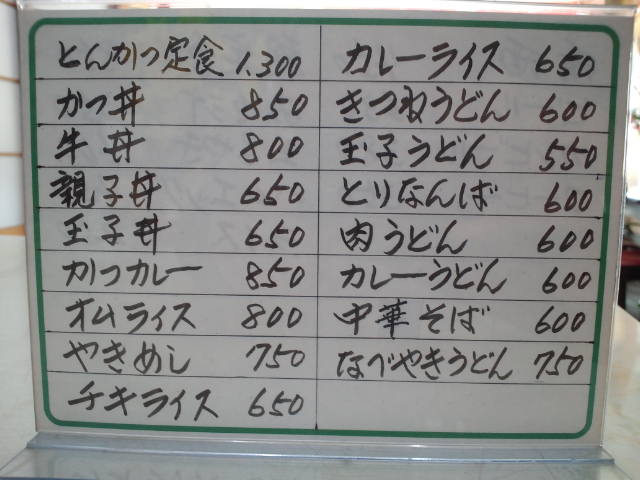 とんかつ定食 1.300
かつ丼 850
牛丼 800
親子丼 650
玉子丼 650
かつカレー 850
オムライス 800
やきめし 750
チキライス 650
カレーライス 650
きつねうどん 600
玉子うどん 550
とりなんば 600
肉うどん 600
カレーうどん 600
中華そば 600
なべやきうどん 750